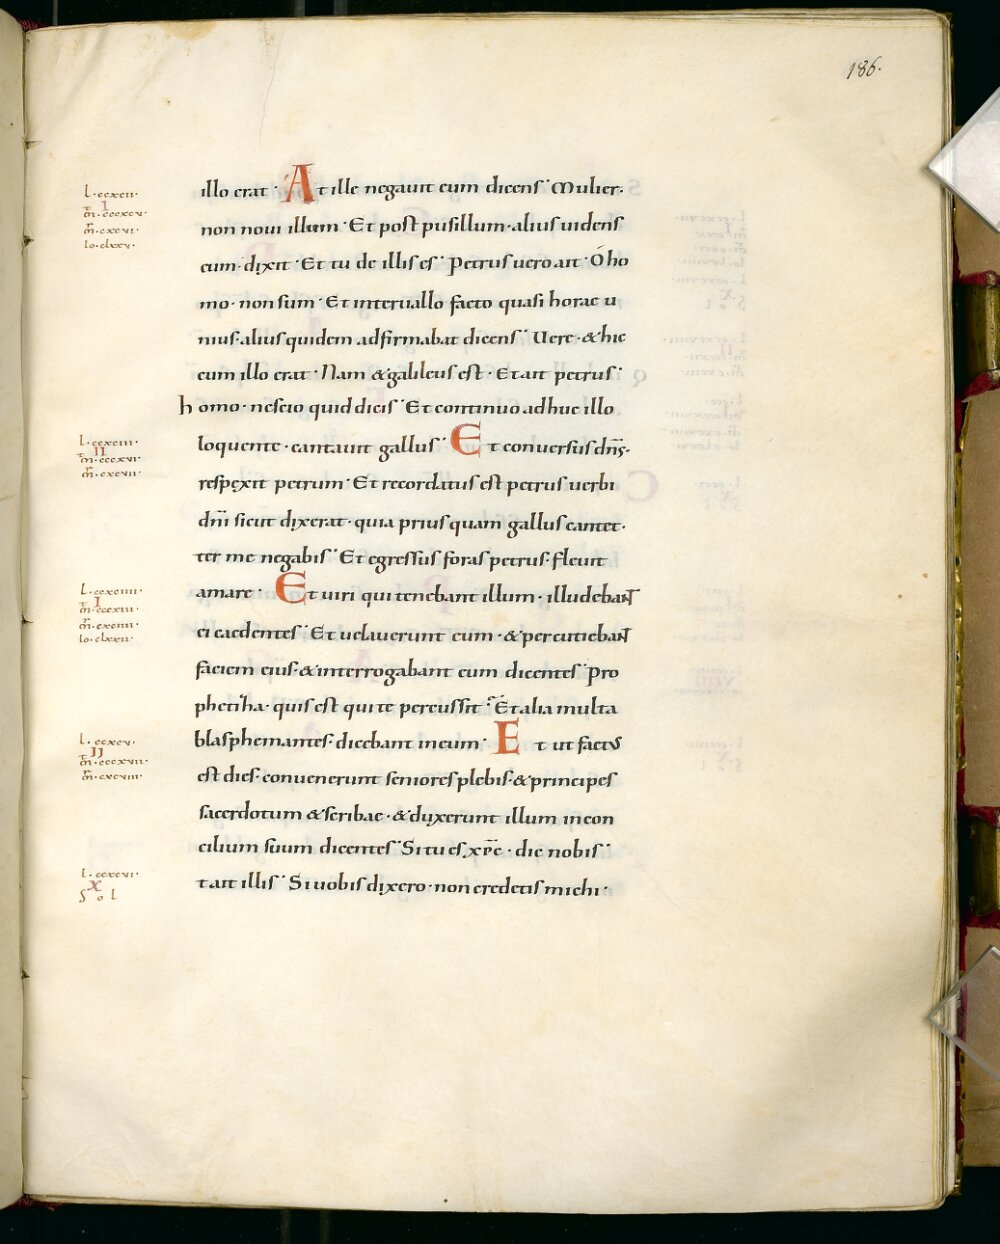 186.
illo erat · At ille negauit eum dicens · Mulier·
non noui illum · Et post pusillum · alius uidens
eum · dixit · Et tu de illis es · Petrus uero ait · Ó ho
mo · non sum · Et interuallo facto quasi horae u
nius · alius quidem adfirmabat dicens · Uere · & hic
cum illo erat · Nam & galileus est · Et ait petrus ·
homo · nescio quid dicis · Et continuo adhuc illo
loquente · cantauit gallus · Et conversus dn̄s·
respexit petrum · Et recordatus est petrus uerbi
dn̄i sicut dixerat · quia prius quam gallus cantet·
ter me negabis · Et egressus foras petrus · fleuit
amare · Et uiri qui tenebant illum · illudebant
ei caedentes · Et uelauerunt eum · & percutiebant
faciem eius · & interrogabant eum dicentes · Pro
phetiha · quis est qui te percussit · Et alia multa
blasphemantes · dicebant in eum · Et ut factus
est dies · conuenerunt seniores plebis · & principes
sacerdotum & scribae · & duxerunt illum in con
cilium suum dicentes · Si tu es xp̄c · dic nobis ·
t ait illis · Si uobis dixero · non credetis michi ·
l · ccxcii ·
I
m̄ · cccxcv ·
lo · clxxv ·
l · ccxciii ·
II
m̄ · cccxcvi ·
m̄r · cxcvii ·
l · ccxciiii ·
I
lo · clxxii ·
l · ccxcv ·
II
m̄ · cccxcvii ·
m̄r · cxcviii ·
l · ccxcvi ·
X
S o l